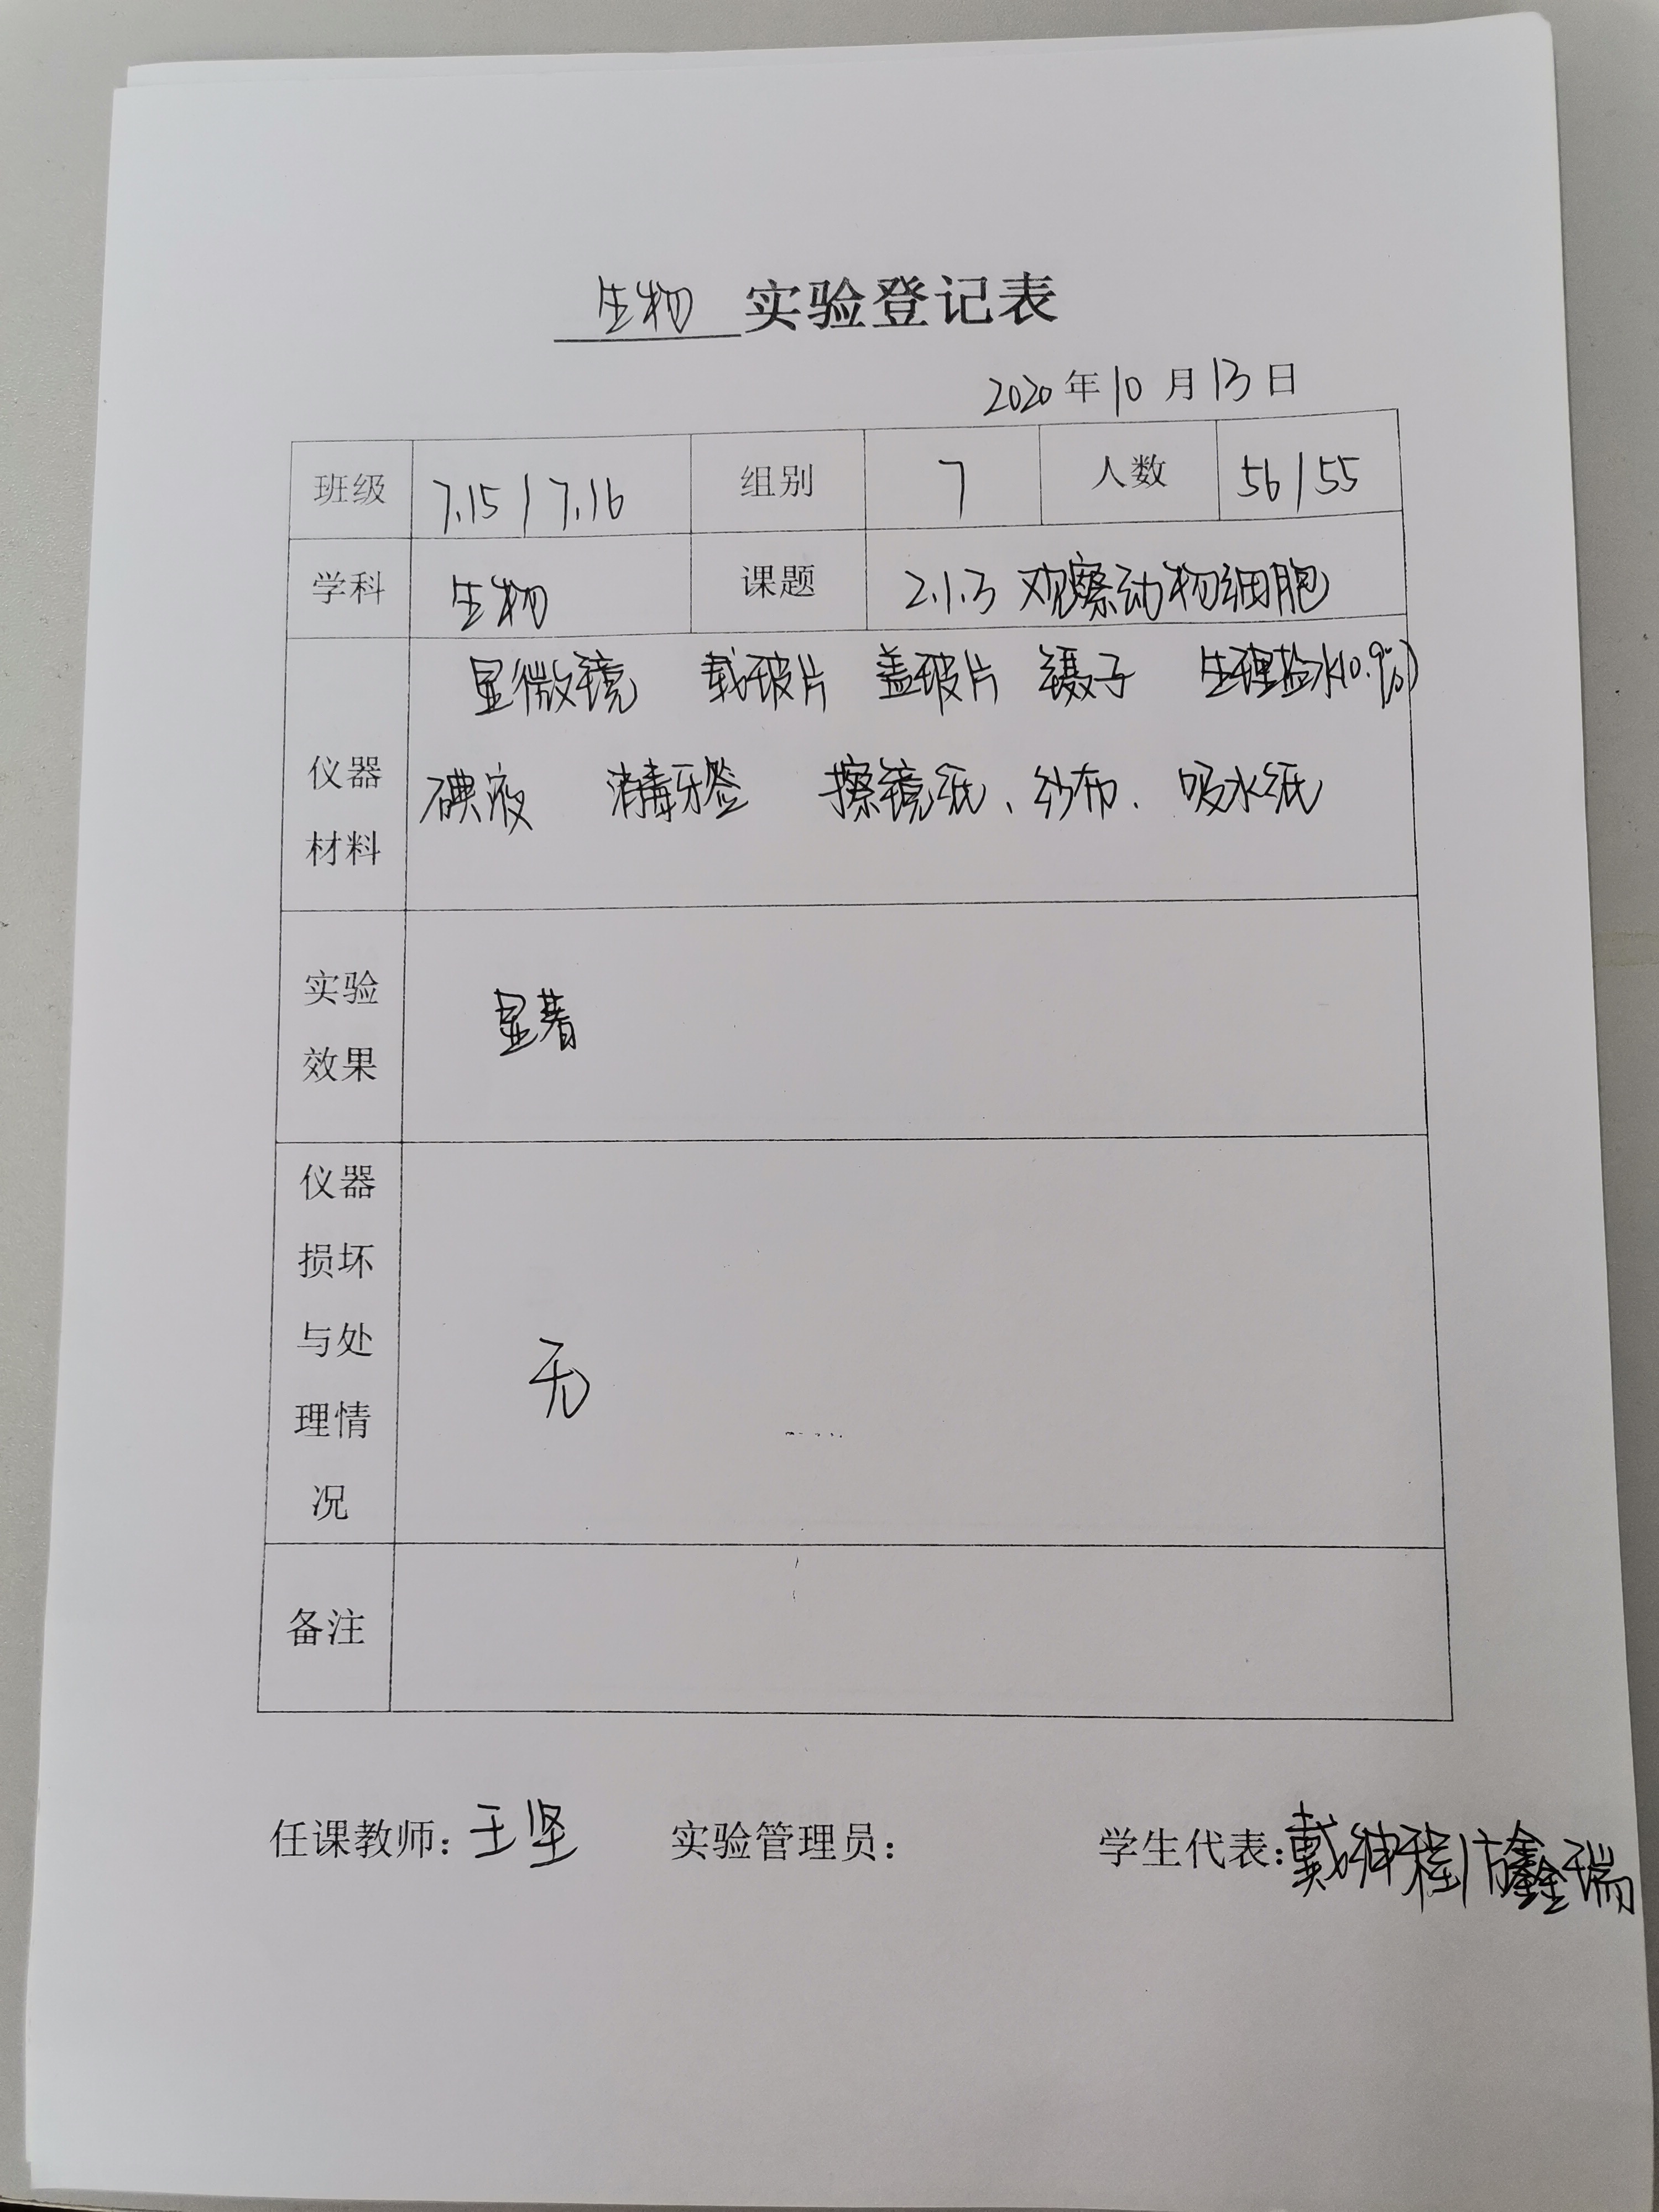 生物 实验登记表
2020年10月13日
班级 7.15/7.16 组别 7 人数 56/55
学科 生物 课题 2.1.3 观察动物细胞
仪器材料 显微镜 载玻片 盖玻片 镊子 生理盐水(0.9%)
碘液 消毒牙签 擦镜纸、纱布、吸水纸
实验效果 显著
仪器损坏与处理情况 无
备注
任课教师：王坚 实验管理员： 学生代表：戴 鑫瑞